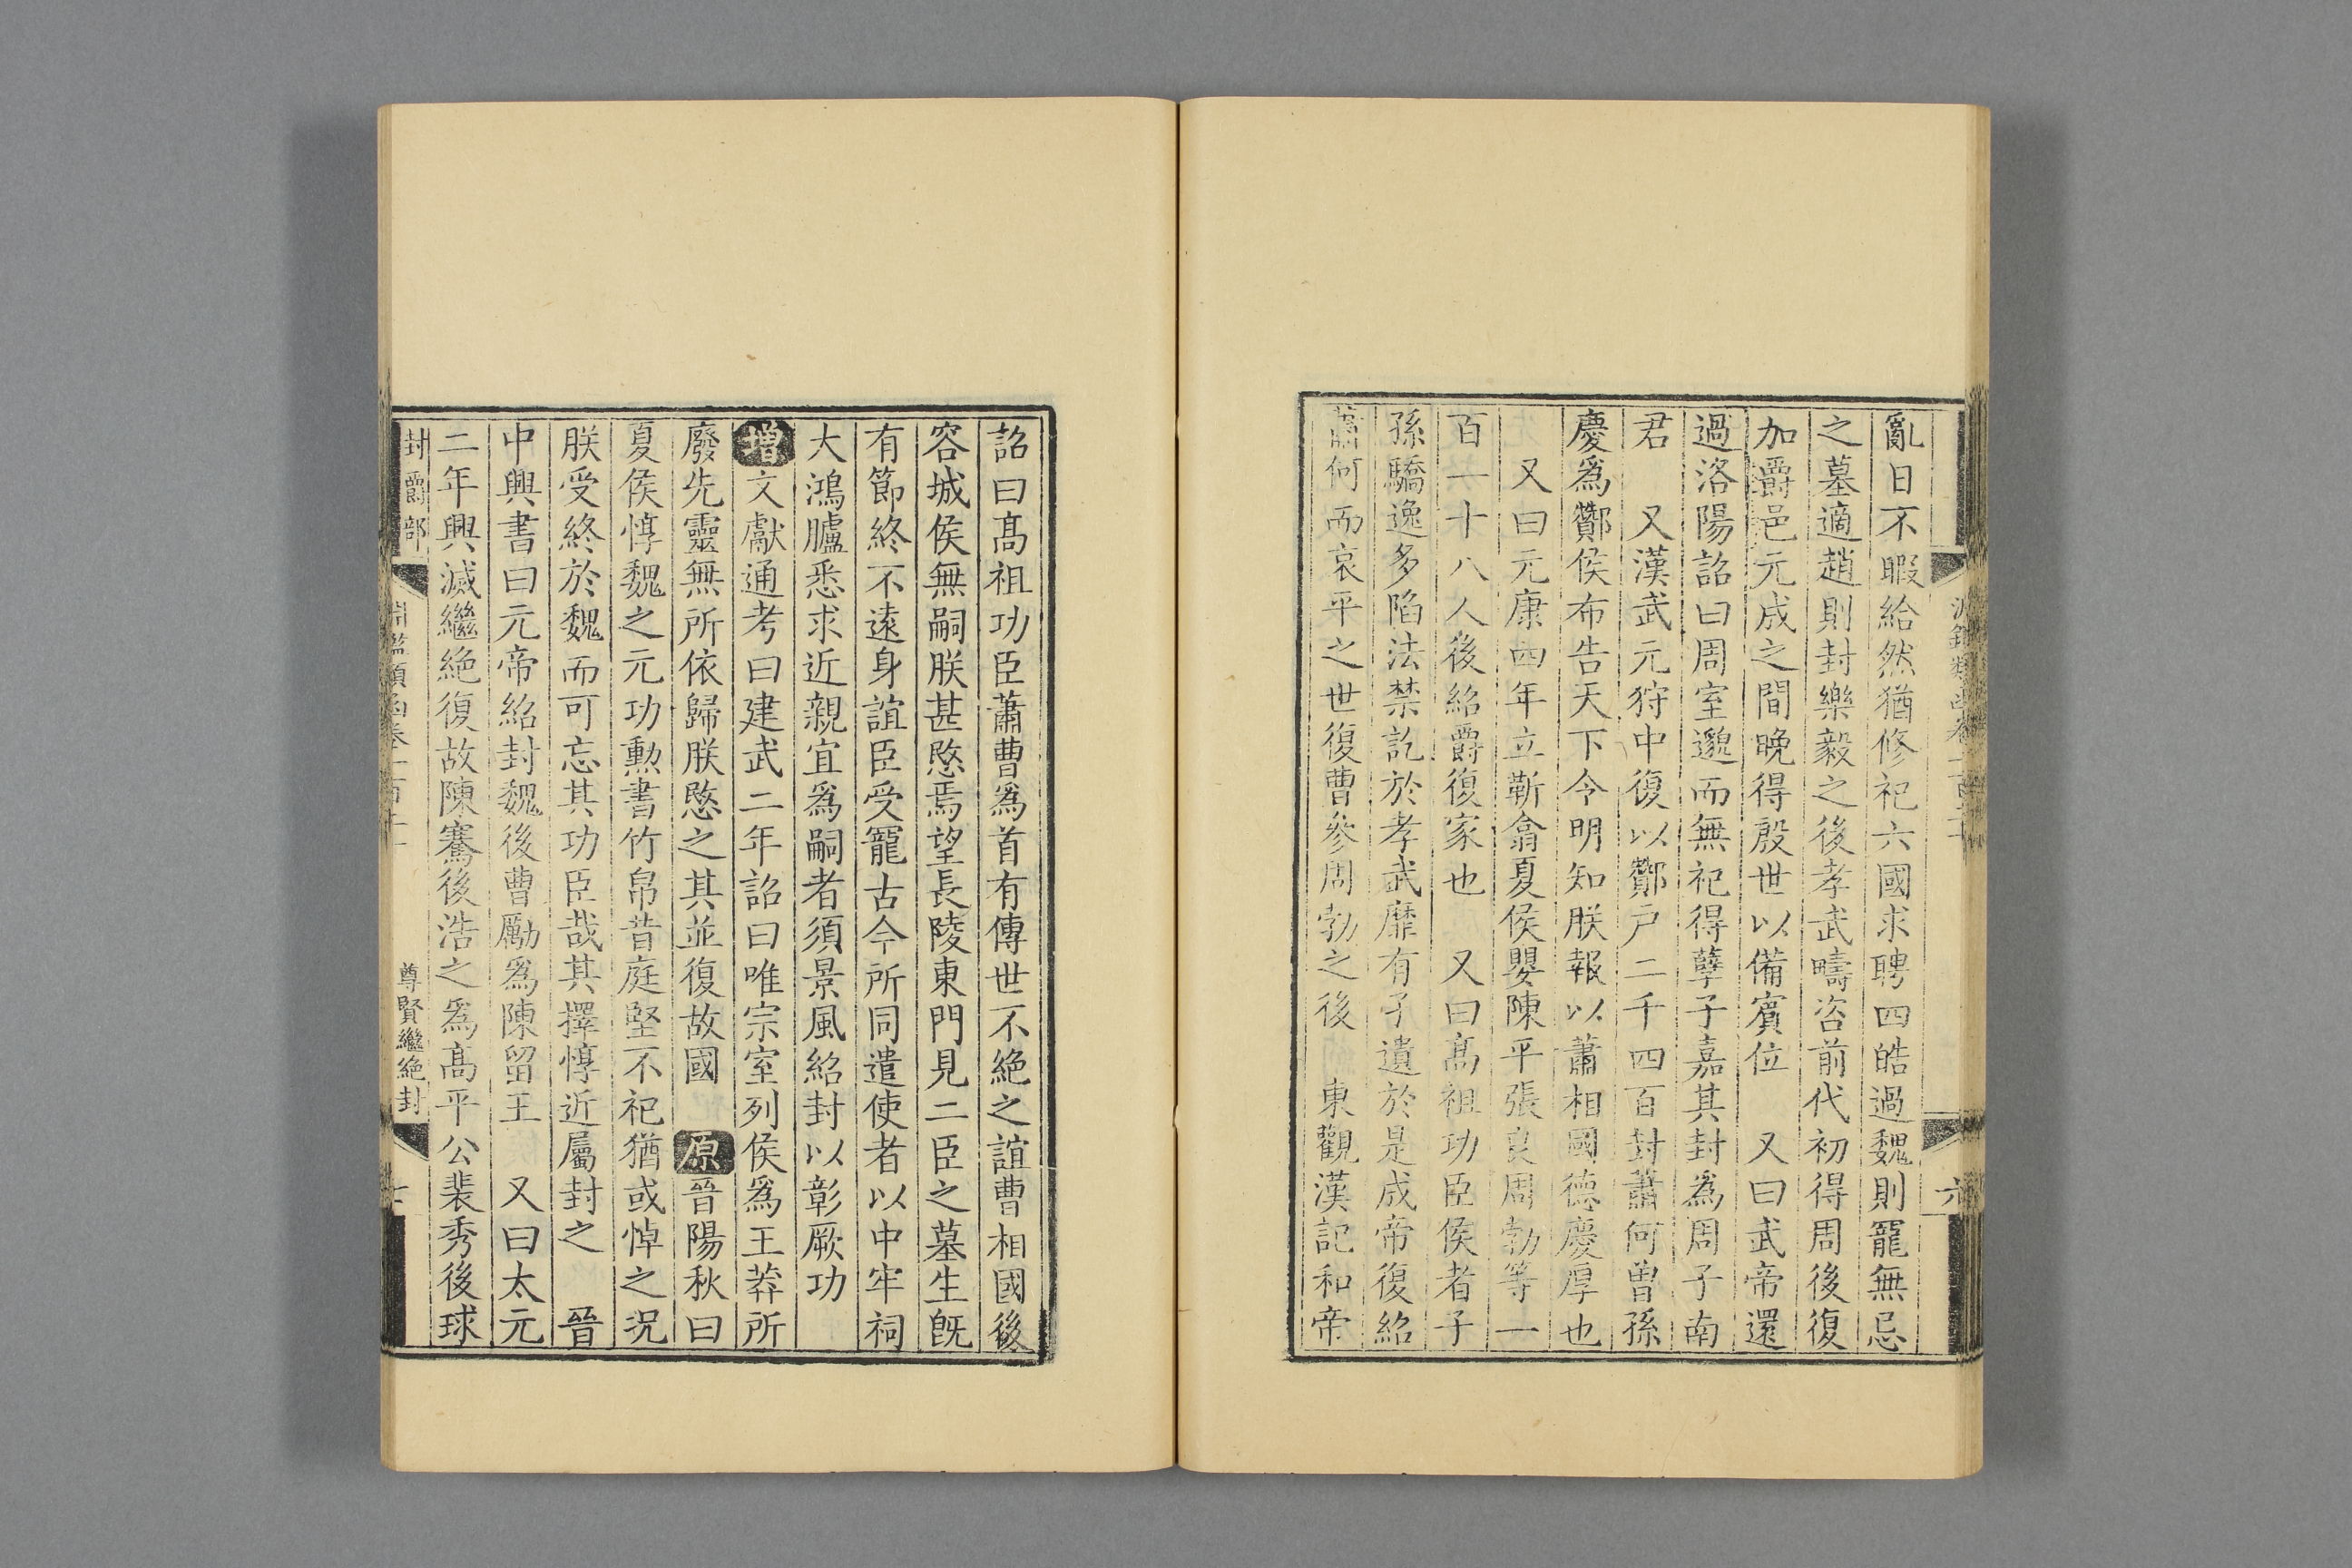 亂日不暇給然猶修祀六國求聘四皓過魏則寵無忌
之墓適趙則封樂毅之後孝武疇咨前代初得周後復
加爵邑元成之間晚得殷世以備賓位　又曰武帝還
過洛陽詔曰周室邈而無祀得孽子嘉其封爲周子南
君　又漢武元狩中復以酇戸二千四百封蕭何曾孫
慶爲酇侯布告天下令明知朕報以蕭相國德慶厚也
又曰元康四年立靳翕夏侯嬰陳平張良周勃等一
百一十八人後紹爵復家也　又曰髙祖功臣侯者子
孫驕逸多陷法禁訖於孝武靡有孑遺於是成帝復紹
蕭何而哀平之世復曹參周勃之後　東觀漢記和帝
詔曰髙祖功臣蕭曹爲首有傳世不絶之誼曹相國後
容城侯無嗣朕甚愍焉望長陵東門見二臣之墓生既
有節終不遠身誼臣受寵古今所同遣使者以中牢祠
大鴻臚悉求近親宜爲嗣者須景風紹封以彰厥功
增文獻通考曰建武二年詔曰唯宗室列侯爲王莽所
廢先靈無所依歸朕愍之其並復故國　原晉陽秋曰
夏侯惇魏之元功勲書竹帛昔庭堅不祀猶或悼之況
朕受終於魏而可忘其功臣哉其擇惇近屬封之　晉
中興書曰元帝紹封魏後曹勵爲陳留王　又曰太元
二年興滅繼絶復故陳騫後浩之爲髙平公裴秀後球
封爵部
尊賢繼絶封
六